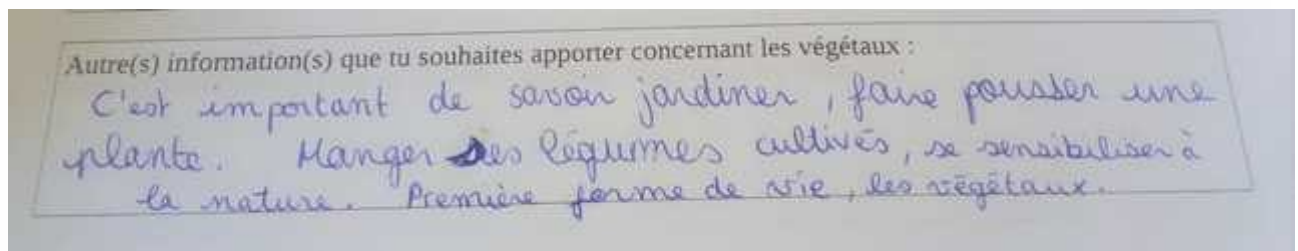 Autre(s) information(s) que tu souhaites apporter concernant les végétaux :
C'est important de savoir jardiner, faire pousser une
plante. Manger des légumes cultivés, se sensibiliser à
la nature. Première forme de vie, les végétaux.